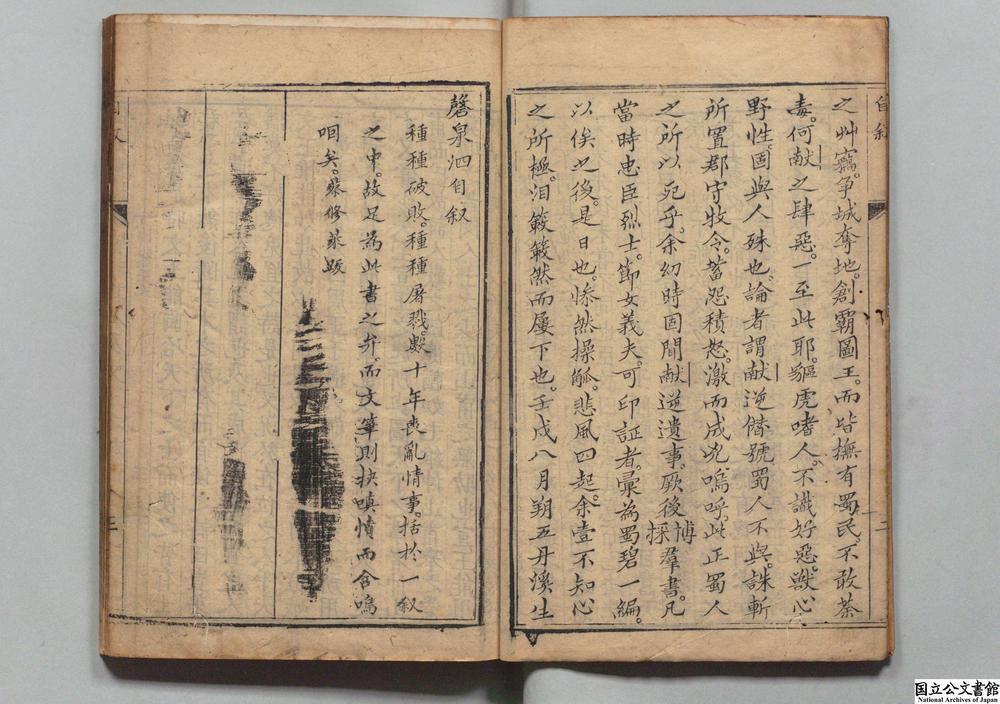 自叙
之艸竊爭城奪地。創霸圖王。而皆撫有蜀民。不敢荼
毒。何献之肆惡。一至此耶。驅虎啫人。不識好惡。獣心
野性。固與人殊也。論者謂献逆僣號。蜀人不與。誅斬
所置郡守牧令。蓄怨積怒。激而成兇。嗚呼。此正蜀人
之所以死乎。余幻時固聞献逆遺事。厥後博採羣書。凡
當時忠臣烈士。節女義夫。可印証者。彚為蜀碧一編。
以俟之後。是日也。惨然操觚。悲風四起。余壹不知心
之所極。泪簌簌然而屡下也。壬戌八月朔五丹溪生
二
磬泉泗自叙
種種破敗。種種屠戮。數十年喪亂情事。括於一叙
之中。故足為此書之弁。而文筆則抉嗔憤而含嗚
咽矣。蔡修萊跋
三
国立公文書館
National Archives of Japan